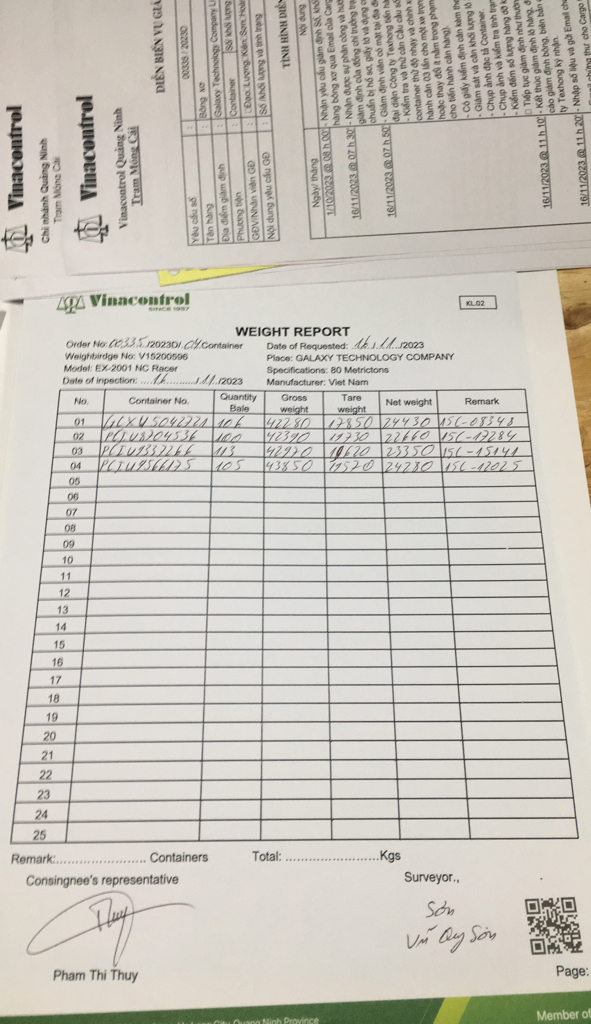 Vinacontrol
Chi nhánh Quảng Ninh
Trạm Móng Cái
Vinacontrol
Vinacontrol Quảng Ninh
Trạm Móng Cái
DIỄN BIẾN VỤ GIÁ
Yêu cầu số : 00335 / 2023D
Tên hàng : Bông xơ
Địa điểm giám định : Galaxy Technology Company Li
Phương tiện : Container Số khối lượng
GĐV/Nhân viên GĐ : Đạo; Lương; Kiên; Sơn; Hoà
Nội dung yêu cầu GĐ : Số /khối lượng và tình trạng
TÌNH HÌNH DIỄN
Ngày/ tháng Nội dung
1/10/2023 @ 08 h 00' - Nhận yêu cầu giám định Số, khối
hàng bông xơ qua Email của Carg
16/11/2023 @ 07 h 30' - Nhận được sự phân công và hướ
giám định của đồng chí trưởng trạ
chuẩn bị hồ sơ, giấy tờ và dụng c
16/11/2023 @ 07 h 50' - Giám định viên có mặt tại địa đi
đại diện Công ty Texhong tiến hà
- Kiểm tra và thử cân Cầu cân số
container thử độ nhạy và chính x
hành cân 03 lần cho một xe trọn
hoặc thay đổi ít nằm trong phạm
cho tiến hành cân hàng).
- Có giấy kiểm định cân kèm the
- Giám sát và cân khối lượng lô
- Chụp ảnh đặc tả Container.
- Chụp ảnh và kiểm tra tình trạn
- Kiểm đếm số lượng hàng dỡ k
Tiếp tục giám định như thường
16/11/2023 @ 11 h 10' - Kết thúc giám định lô hàng, đ
cáo giám định bông, biên bản c
ty Texhong ký nhận.
16/11/2023 @ 11 h 20' - Nhập số liệu và gửi Email cho
Vinacontrol
SINCE 1957
KL.02
WEIGHT REPORT
Order No: 00335 /2023D/ 04 Container Date of Requested: 16 / 11 /2023
Weighbirdge No: V15200596 Place: GALAXY TECHNOLOGY COMPANY
Model: EX-2001 NC Racer Specifications: 80 Metrictons
Date of inpection: 16 / 11 /2023 Manufacturer: Viet Nam
No. Container No. Quantity Bale Gross weight Tare weight Net weight Remark
01 GCXU5042721 106 42280 17850 24430 15C-08348
02 PCIU8704536 100 42390 19730 22660 15C-17284
03 PCIU9337266 113 42970 19620 23350 15C-15141
04 PCIU9366175 105 43850 19570 24280 15C-12025
05
06
07
08
09
10
11
12
13
14
15
16
17
18
19
20
21
22
23
24
25
Remark:........................ Containers Total: ........................Kgs
Consingnee's representative Surveyor.,
Thuy
Sơn
Vũ Quy Sơn
Pham Thi Thuy
Page:
City Quang Ninh Province
Member of